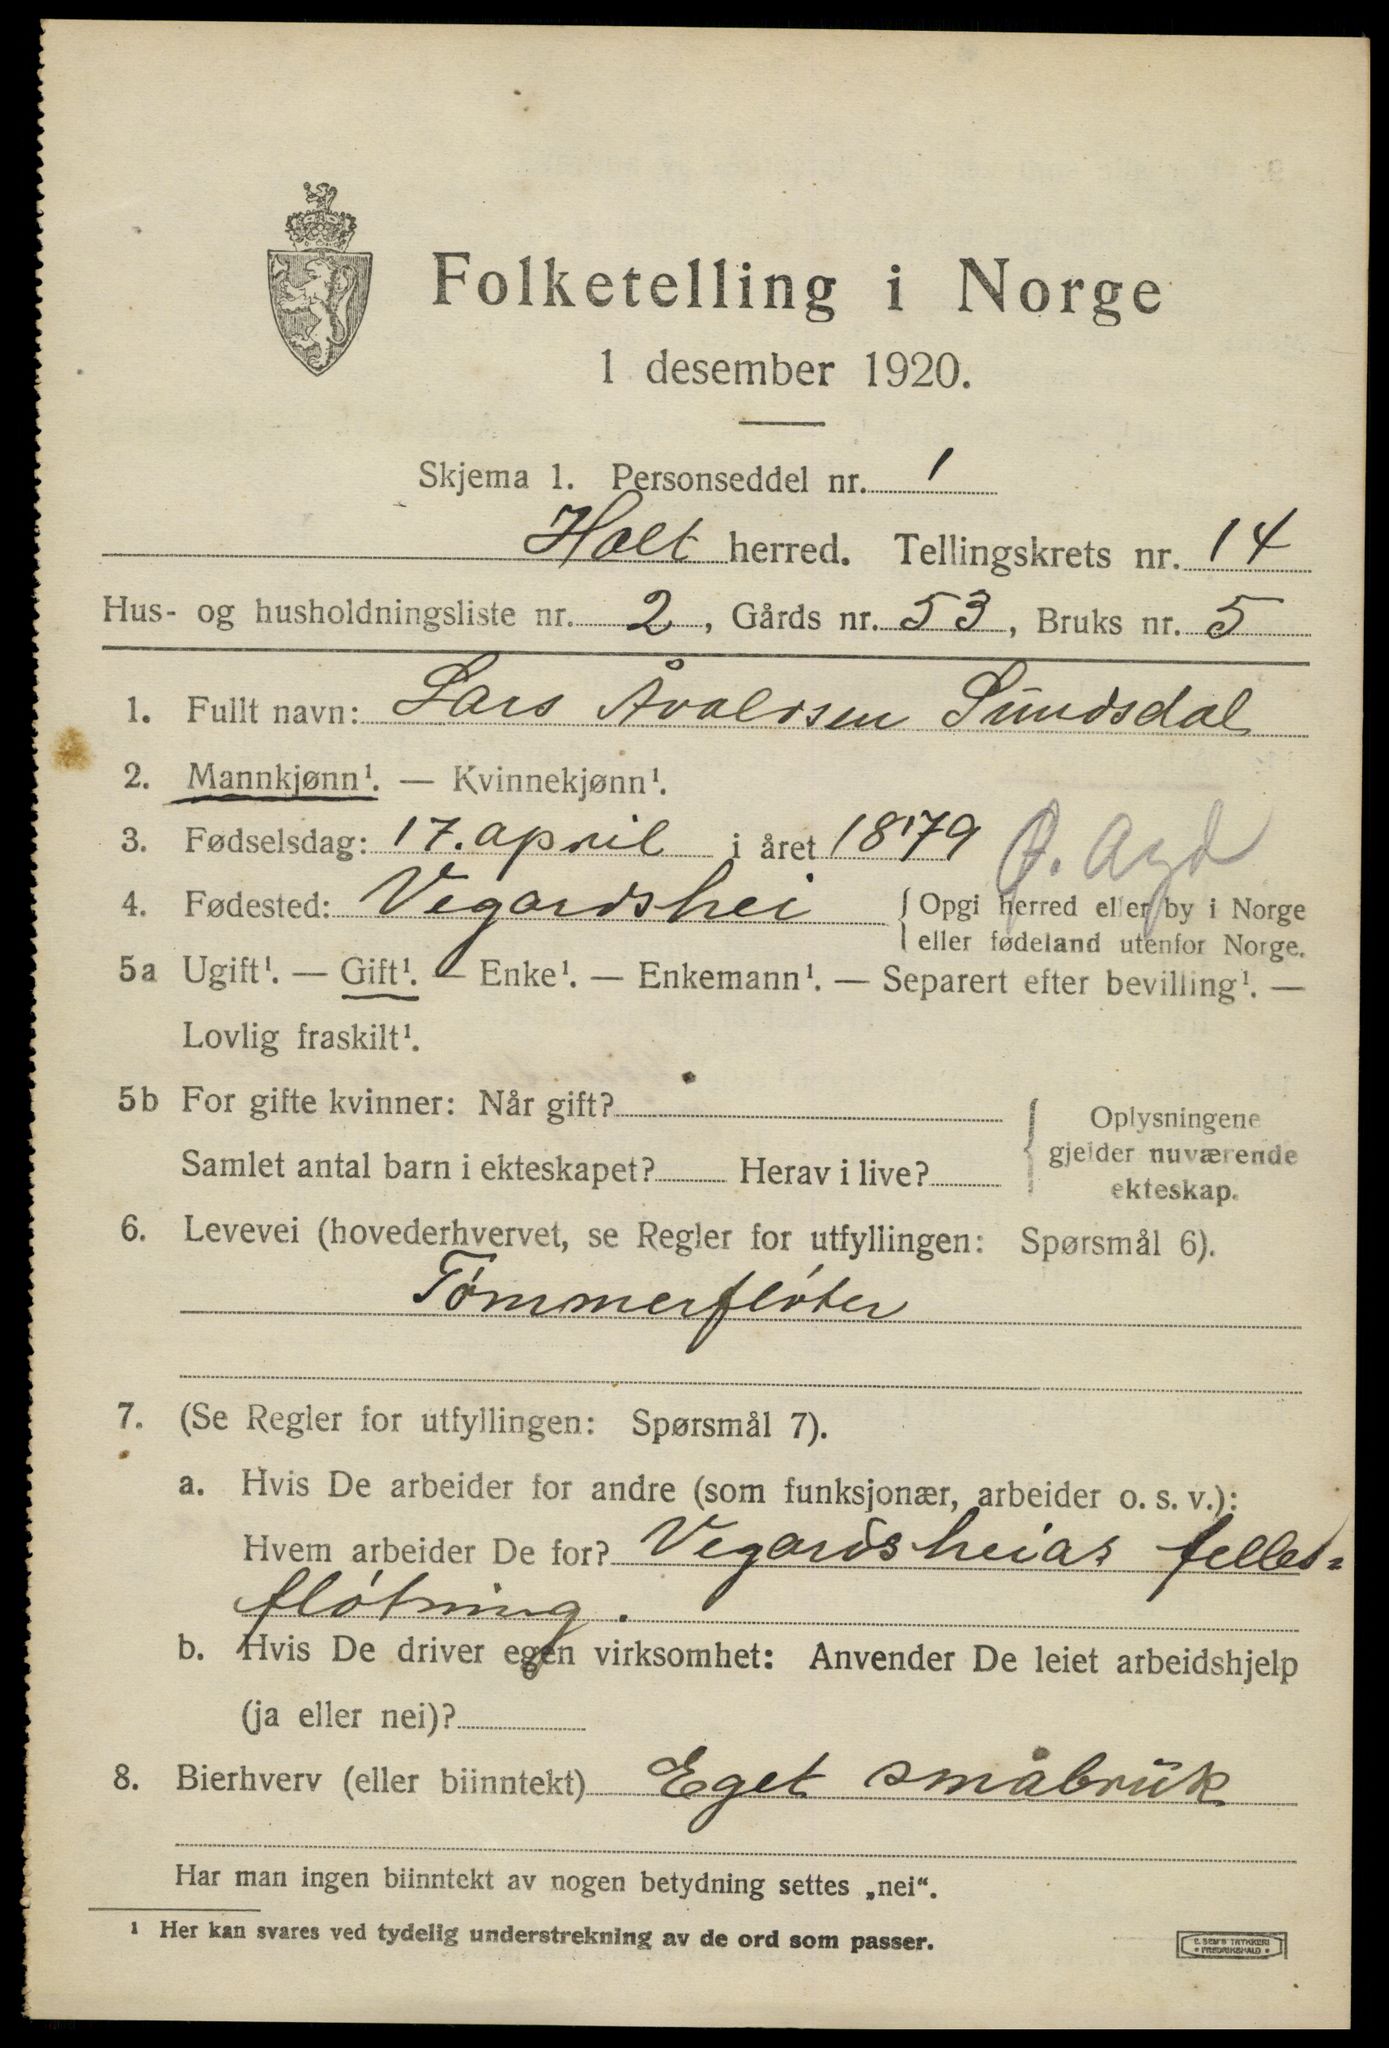 Folketelling i Norge
1 desember 1920.
Skjema 1. Personseddel nr. 1
Holt herred. Tellingskrets nr. 14
Hus- og husholdningsliste nr. 2, Gårds nr. 53, Bruks nr. 5
1. Fullt navn: Lars Åvalsen Sundsdal
2. Mannkjønn¹. — Kvinnekjønn¹.
3. Fødselsdag: 17. april i året 1879 Ø. Agd
4. Fødested: Vegardshei { Opgi herred eller by i Norge
eller fødeland utenfor Norge.
5a Ugift¹. — Gift¹. — Enke¹. — Enkemann¹. — Separert efter bevilling¹. —
Lovlig fraskilt¹.
5b For gifte kvinner: Når gift? { Oplysningene
gjelder nuværende
Samlet antal barn i ekteskapet? Herav i live?
ekteskap.
6. Levevei (hovederhvervet, se Regler for utfyllingen: Spørsmål 6).
Tømmerfløter
7. (Se Regler for utfyllingen: Spørsmål 7).
a. Hvis De arbeider for andre (som funksjonær, arbeider o. s. v.):
Hvem arbeider De for? Vegardsheias felles=
fløtning.
b. Hvis De driver egen virksomhet: Anvender De leiet arbeidshjelp
(ja eller nei)?
8. Bierhverv (eller biinntekt) Eget småbruk
Har man ingen biinntekt av nogen betydning settes „nei“.
¹ Her kan svares ved tydelig understrekning av de ord som passer.
E. SEM'S TRYKKERI
• FREDRIKSHALD •